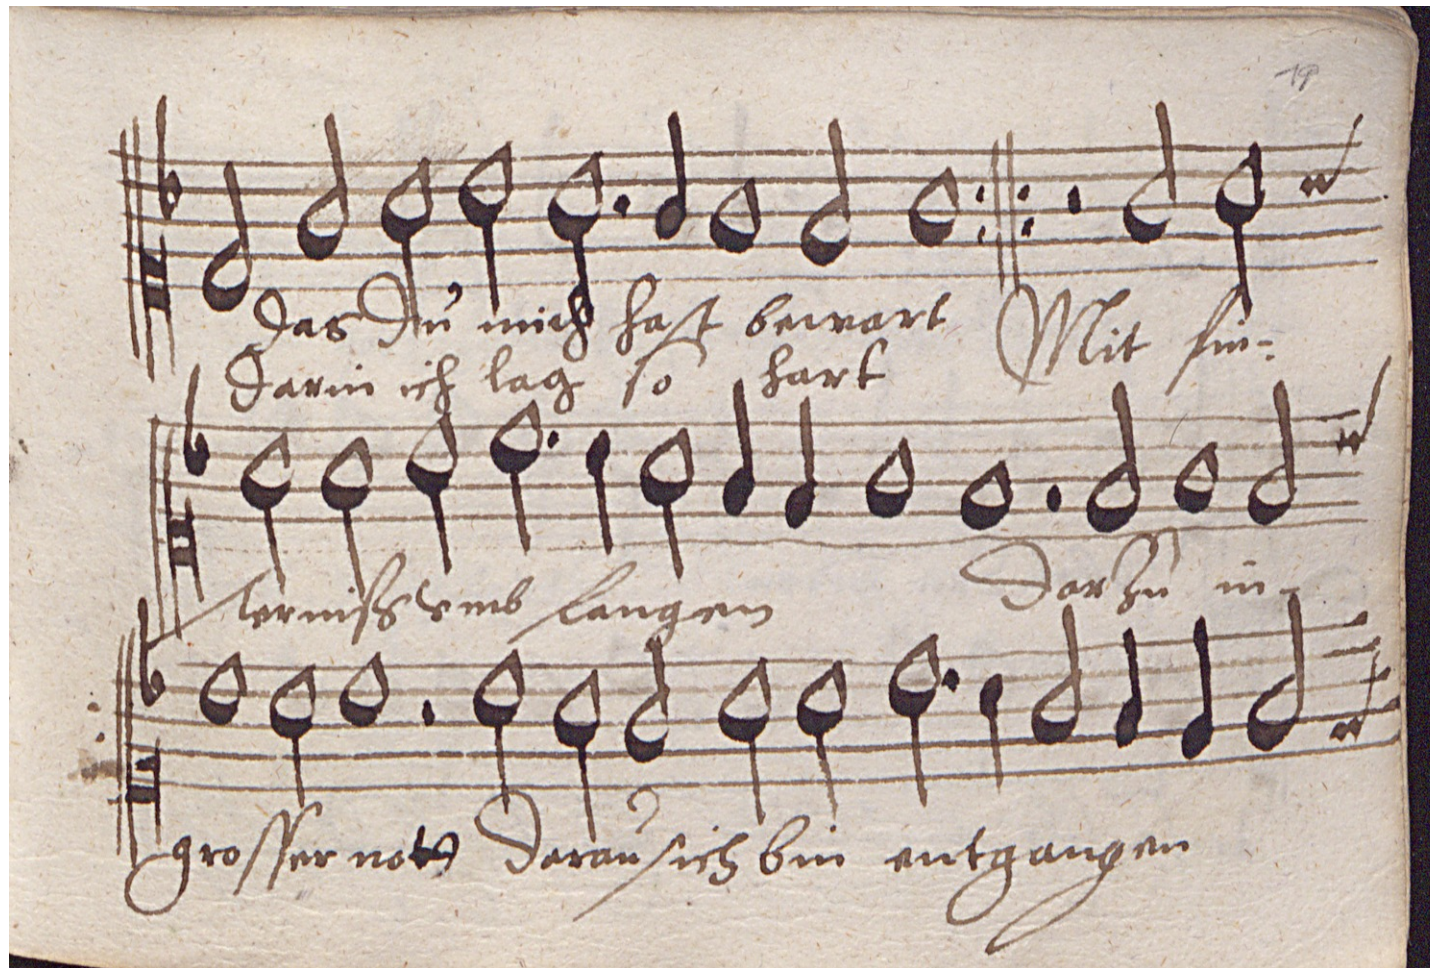 19
das du mich hast bewart Mit fin-
darin ich lag so hart
sternissz vmbfangen Darzu in
grosser noth Daraus ich bin entgangen